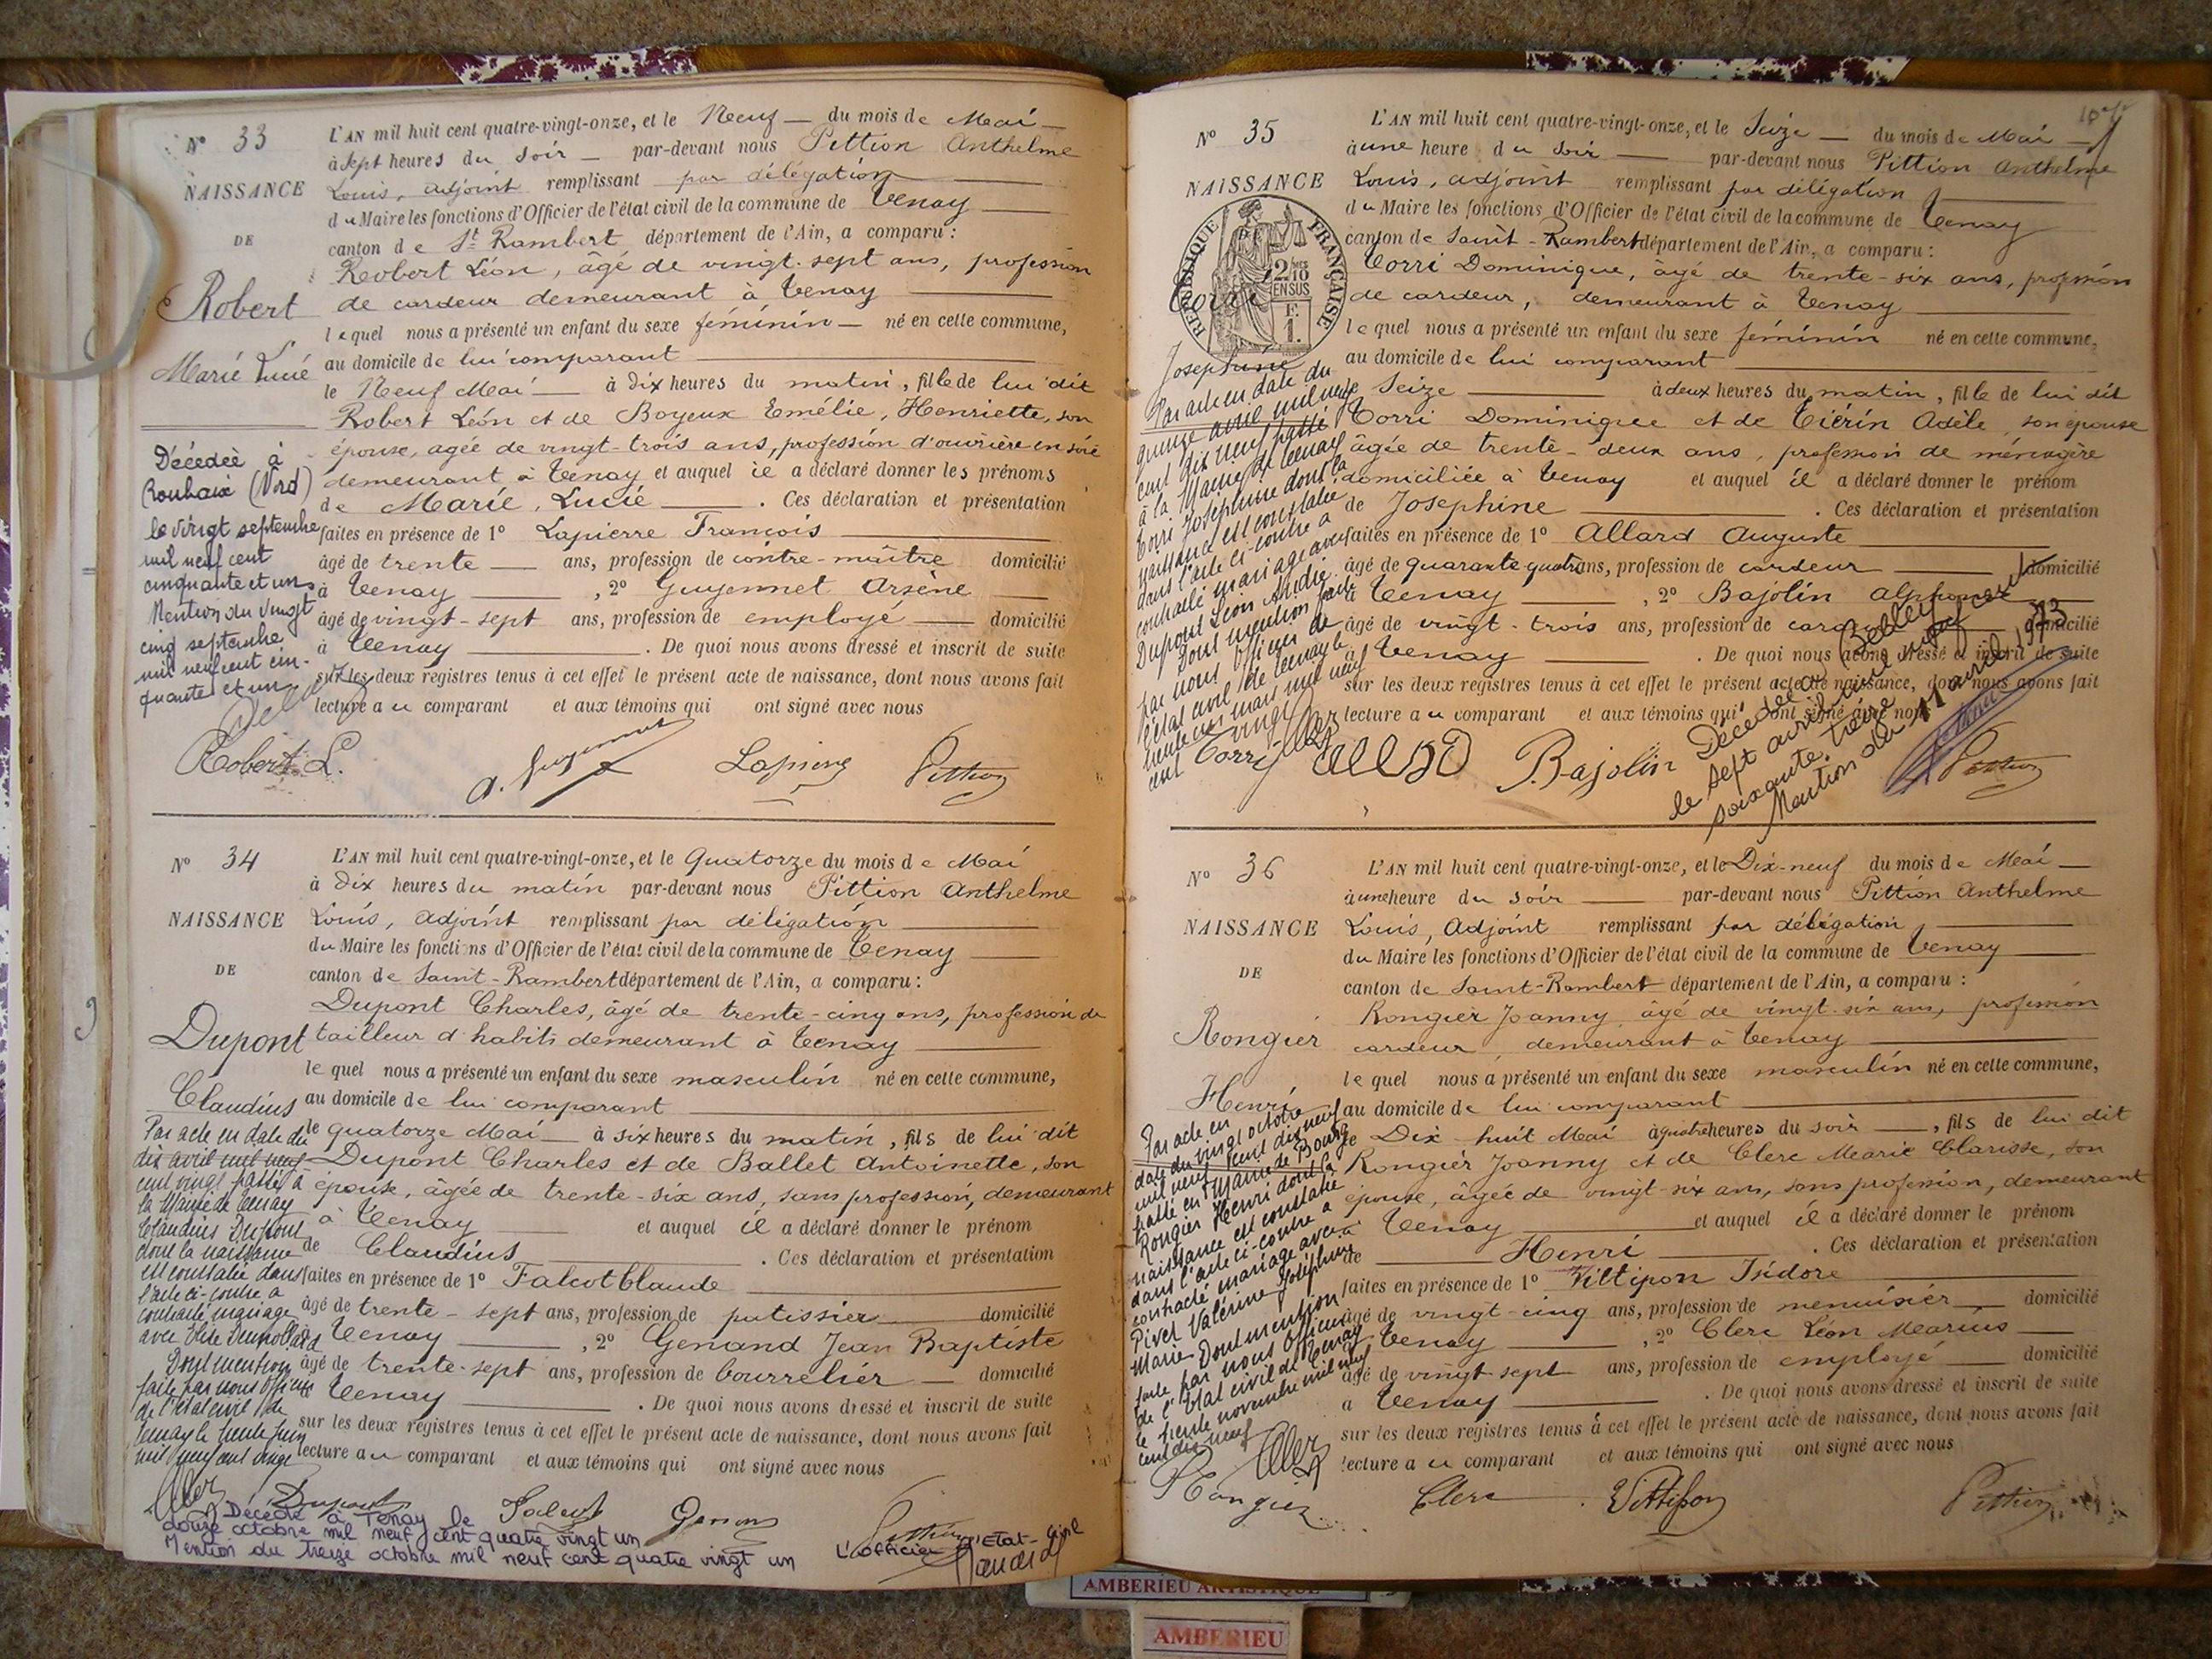 N° 33
NAISSANCE
DE
Robert
Marie Lucie
L'AN mil huit cent quatre-vingt-onze, et le Neuf — du mois de Mai —
à sept heures du soir — par-devant nous Pittion Anthelme
Louis, adjoint remplissant par délégation
du Maire les fonctions d'Officier de l'état civil de la commune de Tenay
canton de St Rambert département de l'Ain, a comparu :
Robert Léon, âgé de vingt-sept ans, profession
de cardeur demeurant à Tenay
lequel nous a présenté un enfant du sexe féminin — né en cette commune,
au domicile de lui comparant
le Neuf Mai — à dix heures du matin, fille de lui dit
Robert Léon et de Boyeux Emélie, Henriette, son
épouse, agée de vingt-trois ans, profession d'ouvrière en soie
demeurant à Tenay et auquel il a déclaré donner les prénoms
de Marie, Lucie . Ces déclaration et présentation
faites en présence de 1° Lapierre François
âgé de trente — ans, profession de contre-maître domicilié
à Tenay , 2° Guyennet Arsène
âgé de vingt-sept ans, profession de employé — domicilié
à Tenay . De quoi nous avons dressé et inscrit de suite
sur les deux registres tenus à cet effet le présent acte de naissance, dont nous avons fait
lecture au comparant et aux témoins qui ont signé avec nous
Décédée à
Roubaix (Nord)
le vingt septembre
mil neuf cent
cinquante et un
Mention du vingt
cinq septembre
mil neuf cent cin-
quante et un
Robert L. A. Guyennet Lapierre Pittion
N° 34
NAISSANCE
DE
Dupont
Claudius
L'AN mil huit cent quatre-vingt-onze, et le Quatorze du mois de Mai
à dix heures du matin par-devant nous Pittion Anthelme
Louis, adjoint remplissant par délégation
du Maire les fonctions d'Officier de l'état civil de la commune de Tenay
canton de Saint-Rambert département de l'Ain, a comparu :
Dupont Charles, âgé de trente-cinq ans, profession de
tailleur d'habits demeurant à Tenay
lequel nous a présenté un enfant du sexe masculin né en cette commune,
au domicile de lui comparant
le quatorze Mai — à six heures du matin, fils de lui dit
Dupont Charles et de Ballet Antoinette, son
épouse, âgée de trente-six ans, sans profession, demeurant
à Tenay et auquel il a déclaré donner le prénom
de Claudius . Ces déclaration et présentation
faites en présence de 1° Falcot Claude
âgé de trente-sept ans, profession de patissier domicilié
à Tenay , 2° Genand Jean Baptiste
âgé de trente-sept ans, profession de bourrelier — domicilié
à Tenay . De quoi nous avons dressé et inscrit de suite
sur les deux registres tenus à cet effet le présent acte de naissance, dont nous avons fait
lecture au comparant et aux témoins qui ont signé avec nous
Par acte en date du
dix avril mil neuf
cent vingt passé à
la Mairie de Tenay
Claudius Dupont
dont la naissance
est constatée dans
l'acte ci-contre a
contracté mariage
avec Elise
Dont mention
faite par nous Officier
de l'état civil de
Tenay le trente juin
mil neuf cent vingt
Dupont Falcot Genand Pittion
Décédé à Tenay le
douze octobre mil neuf cent quatre vingt un
Mention du treize octobre mil neuf cent quatre vingt un
L'officier d'Etat-Civil
N° 35
NAISSANCE
RÉPUBLIQUE FRANÇAISE
2/10 EN SUS
F.
1.
Torri
Josephine
L'AN mil huit cent quatre-vingt-onze, et le Seize — du mois de Mai —
à une heure du soir — par-devant nous Pittion Anthelme
Louis, adjoint remplissant par délégation
du Maire les fonctions d'Officier de l'état civil de la commune de Tenay
canton de Saint-Rambert département de l'Ain, a comparu :
Torri Dominique, âgé de trente-six ans, profession
de cardeur, demeurant à Tenay
lequel nous a présenté un enfant du sexe féminin né en cette commune,
au domicile de lui comparant
le Seize à deux heures du matin, fille de lui dit
Torri Dominique et de Tiérin Adèle, son épouse
âgée de trente-deux ans, profession de ménagère
domiciliée à Tenay et auquel il a déclaré donner le prénom
de Josephine . Ces déclaration et présentation
faites en présence de 1° Allard Auguste
âgé de quarante-quatre ans, profession de cardeur domicilié
à Tenay , 2° Bajolin Alphonse
âgé de vingt-trois ans, profession de cardeur domicilié
à Tenay . De quoi nous avons dressé et inscrit de suite
sur les deux registres tenus à cet effet le présent acte de naissance, dont nous avons fait
lecture au comparant et aux témoins qui ont signé avec nous
Par acte en date du
quinze avril mil neuf
cent dix neuf passé
à la Mairie de Tenay
Torri Joséphine dont la
naissance est constatée
dans l'acte ci-contre a
contracté mariage avec
Dupont Léon André
Dont mention faite
par nous Officier de
l'état civil de Tenay le
trente un mars mil neuf
cent vingt
Décédée à Belley
le sept avril mil neuf cent
soixante treize
Mention du 11 avril 1973
Torri Allard Bajolin Pittion
N° 36
NAISSANCE
DE
Rongier
Henri
L'AN mil huit cent quatre-vingt-onze, et le Dix-neuf du mois de Mai —
à une heure du soir — par-devant nous Pittion Anthelme
Louis, Adjoint remplissant par délégation
du Maire les fonctions d'Officier de l'état civil de la commune de Tenay
canton de Saint-Rambert département de l'Ain, a comparu :
Rongier Joanny, âgé de vingt-six ans, profession
cardeur, demeurant à Tenay
lequel nous a présenté un enfant du sexe masculin né en cette commune,
au domicile de lui comparant
le Dix-huit Mai à quatre heures du soir —, fils de lui dit
Rongier Joanny et de Clerc Marie Clarisse, son
épouse, âgée de vingt-six ans, sans profession, demeurant
à Tenay et auquel il a déclaré donner le prénom
de Henri . Ces déclaration et présentation
faites en présence de 1° Vittipon Isidore
âgé de vingt-cinq ans, profession de menuisier domicilié
à Tenay , 2° Clerc Léon Marius
âgé de vingt sept ans, profession de employé domicilié
a Tenay . De quoi nous avons dressé et inscrit de suite
sur les deux registres tenus à cet effet le présent acte de naissance, dont nous avons fait
lecture au comparant et aux témoins qui ont signé avec nous
Par acte en
date du vingt octobre
mil neuf cent dix neuf
passé en Mairie de Bourg
Rongier Henri dont la
naissance est constatée
dans l'acte ci-contre a
contracté mariage avec
Pivet Valérine Joséphine
Marie Dont mention
faite par nous Officier
de l'état civil de Tenay
le trente novembre mil neuf
cent dix neuf
Rongier Clerc Vittipon Pittion
AMBERIEU ARTISTIQUE
AMBERIEU